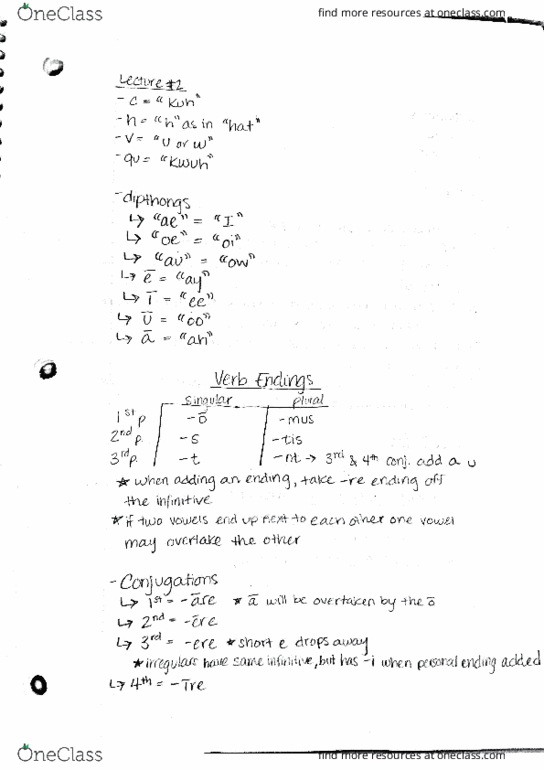 OneClass
find more resources at oneclass.com
Lecture #2
- c = "kuh"
- h = "h" as in "hat"
- v = "u or w"
- qu = "kwuh"
- dipthongs
↳ "ae" = "I"
↳ "oe" = "oi"
↳ "au" = "ow"
↳ ē = "ay"
↳ ī = "ee"
↳ ū = "oo"
↳ ā = "ah"
Verb Endings
singular plural
1st p -ō -mus
2nd p. -s -tis
3rd p. -t -nt → 3rd & 4th conj. add a u
★ when adding an ending, take -re ending off
the infinitive
★ if two vowels end up next to each other one vowel
may overtake the other
- Conjugations
↳ 1st = -āre ★ ā will be overtaken by the ō
↳ 2nd = -ēre
↳ 3rd = -ere ★ short e drops away
★ irregulars have same infinitive, but has -i when personal ending added
↳ 4th = -īre
OneClass
find more resources at oneclass.com